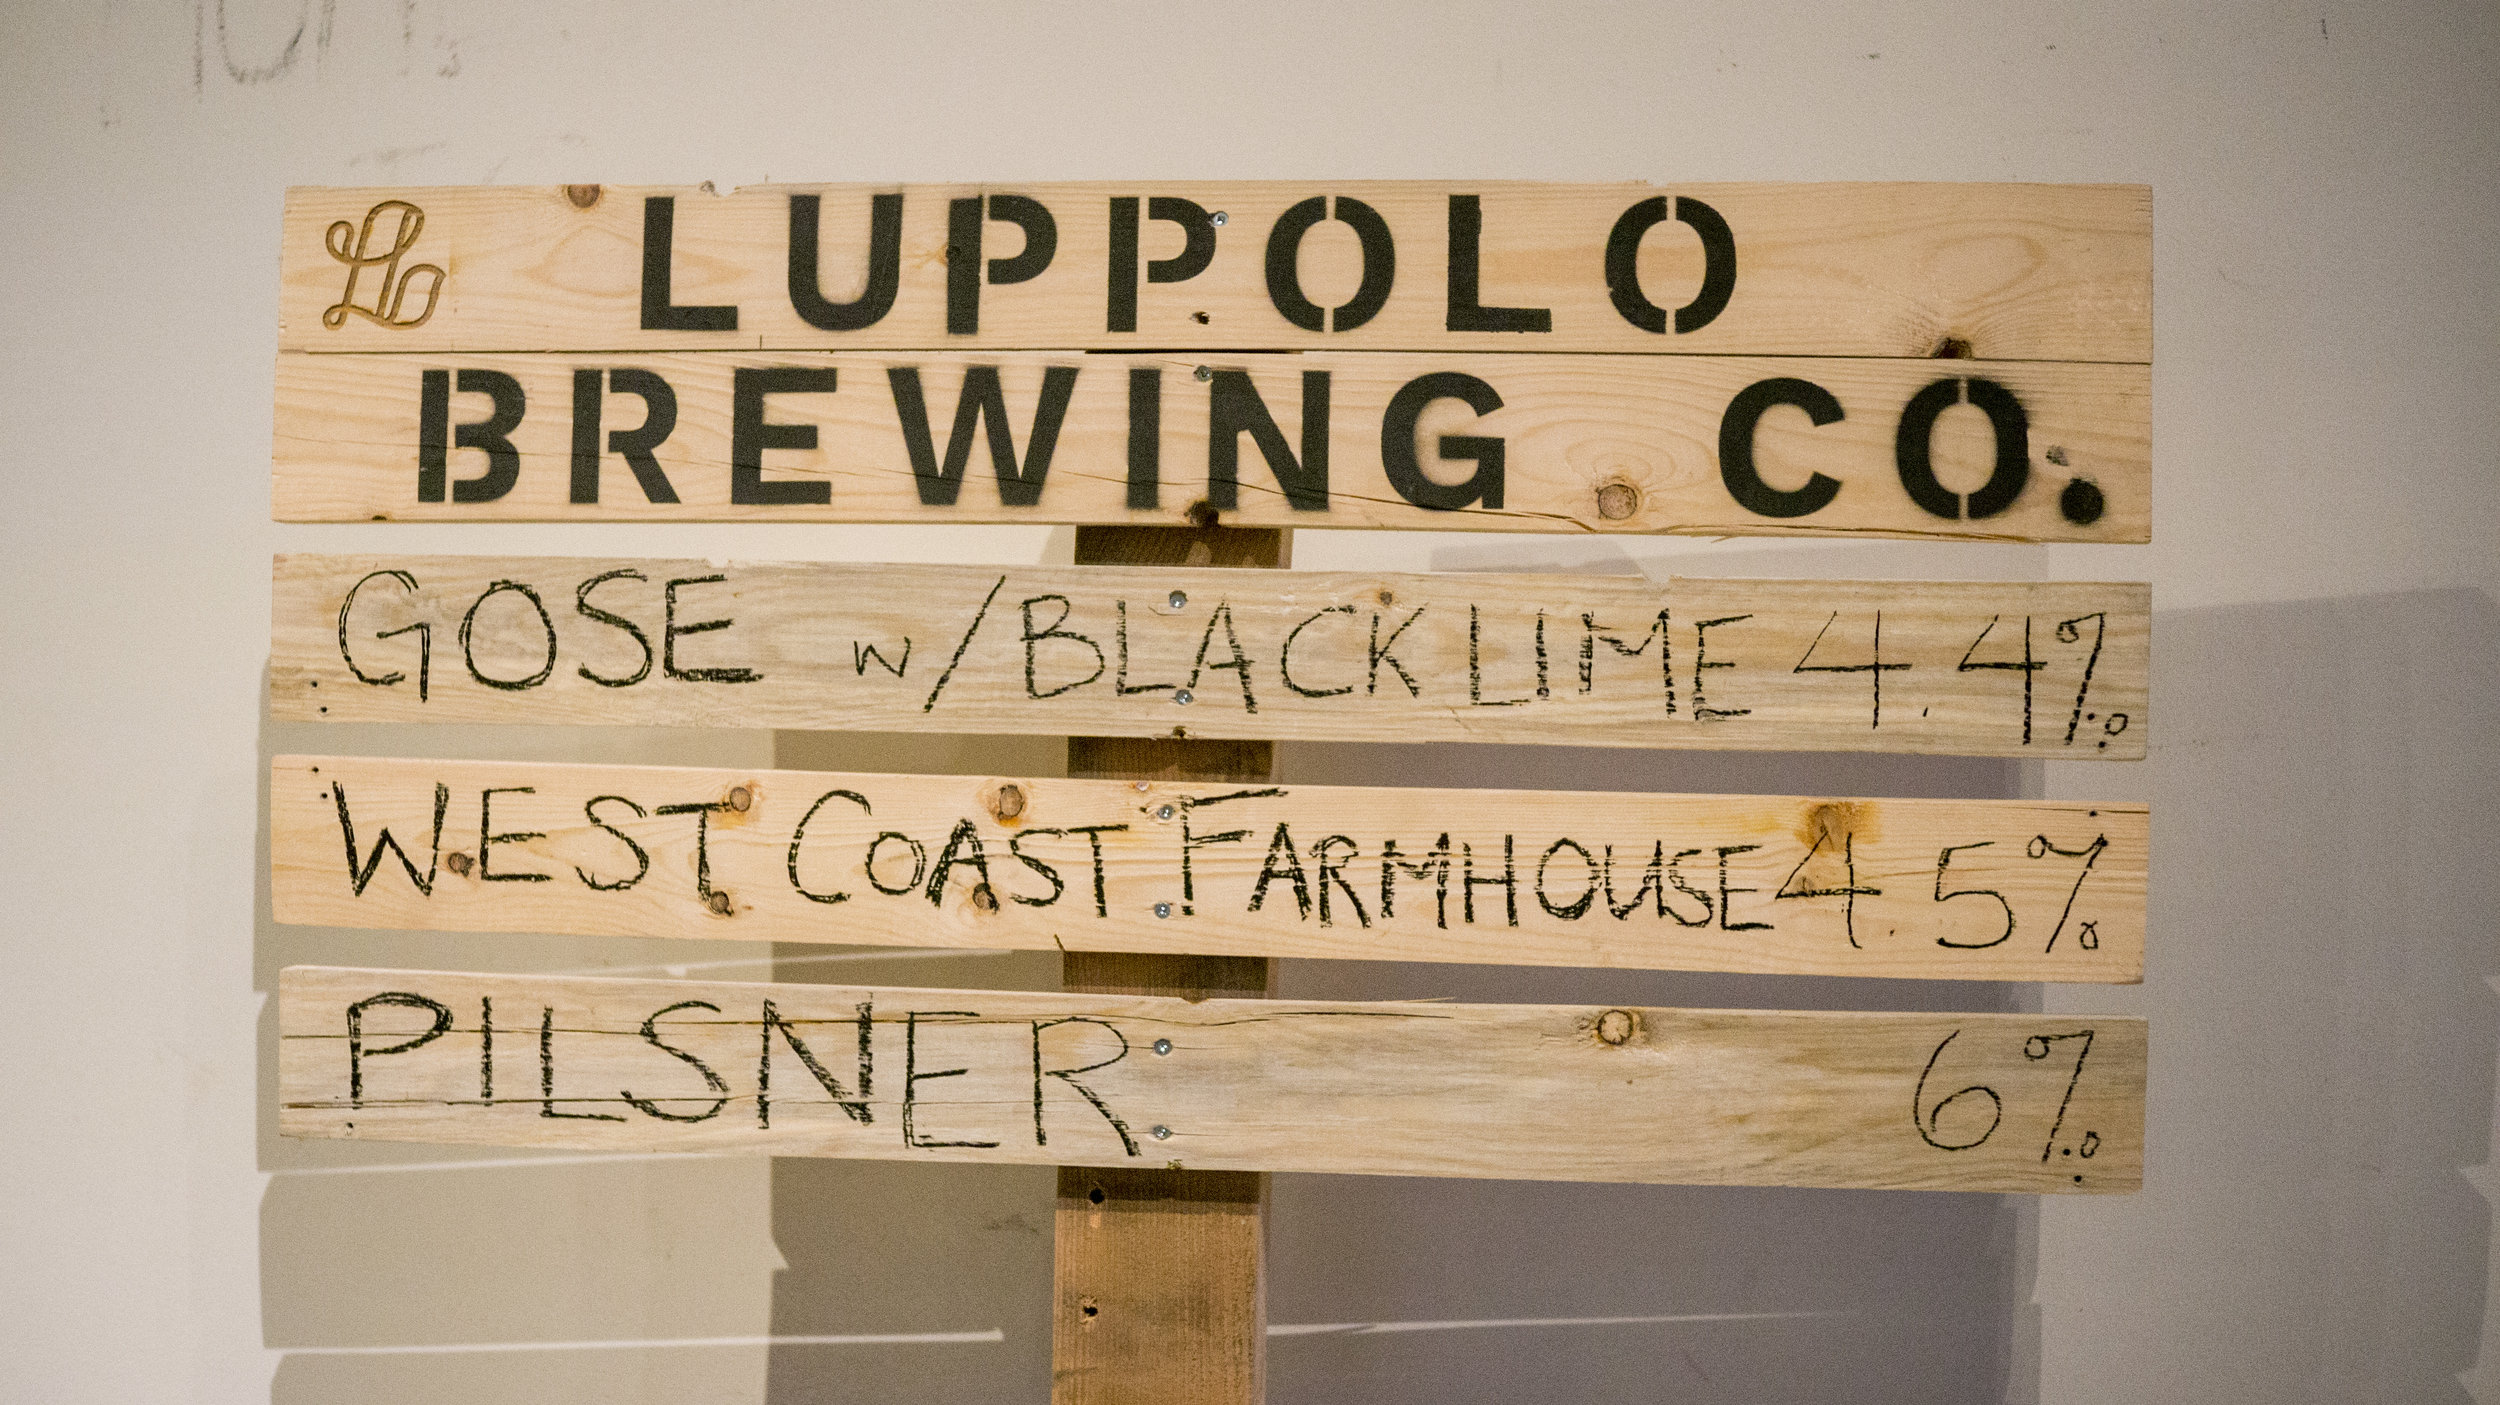 LUPPOLO
BREWING CO.
GOSE w/BLACK LIME 4.4%
WEST COAST FARMHOUSE 4.5%
PILSNER 6%